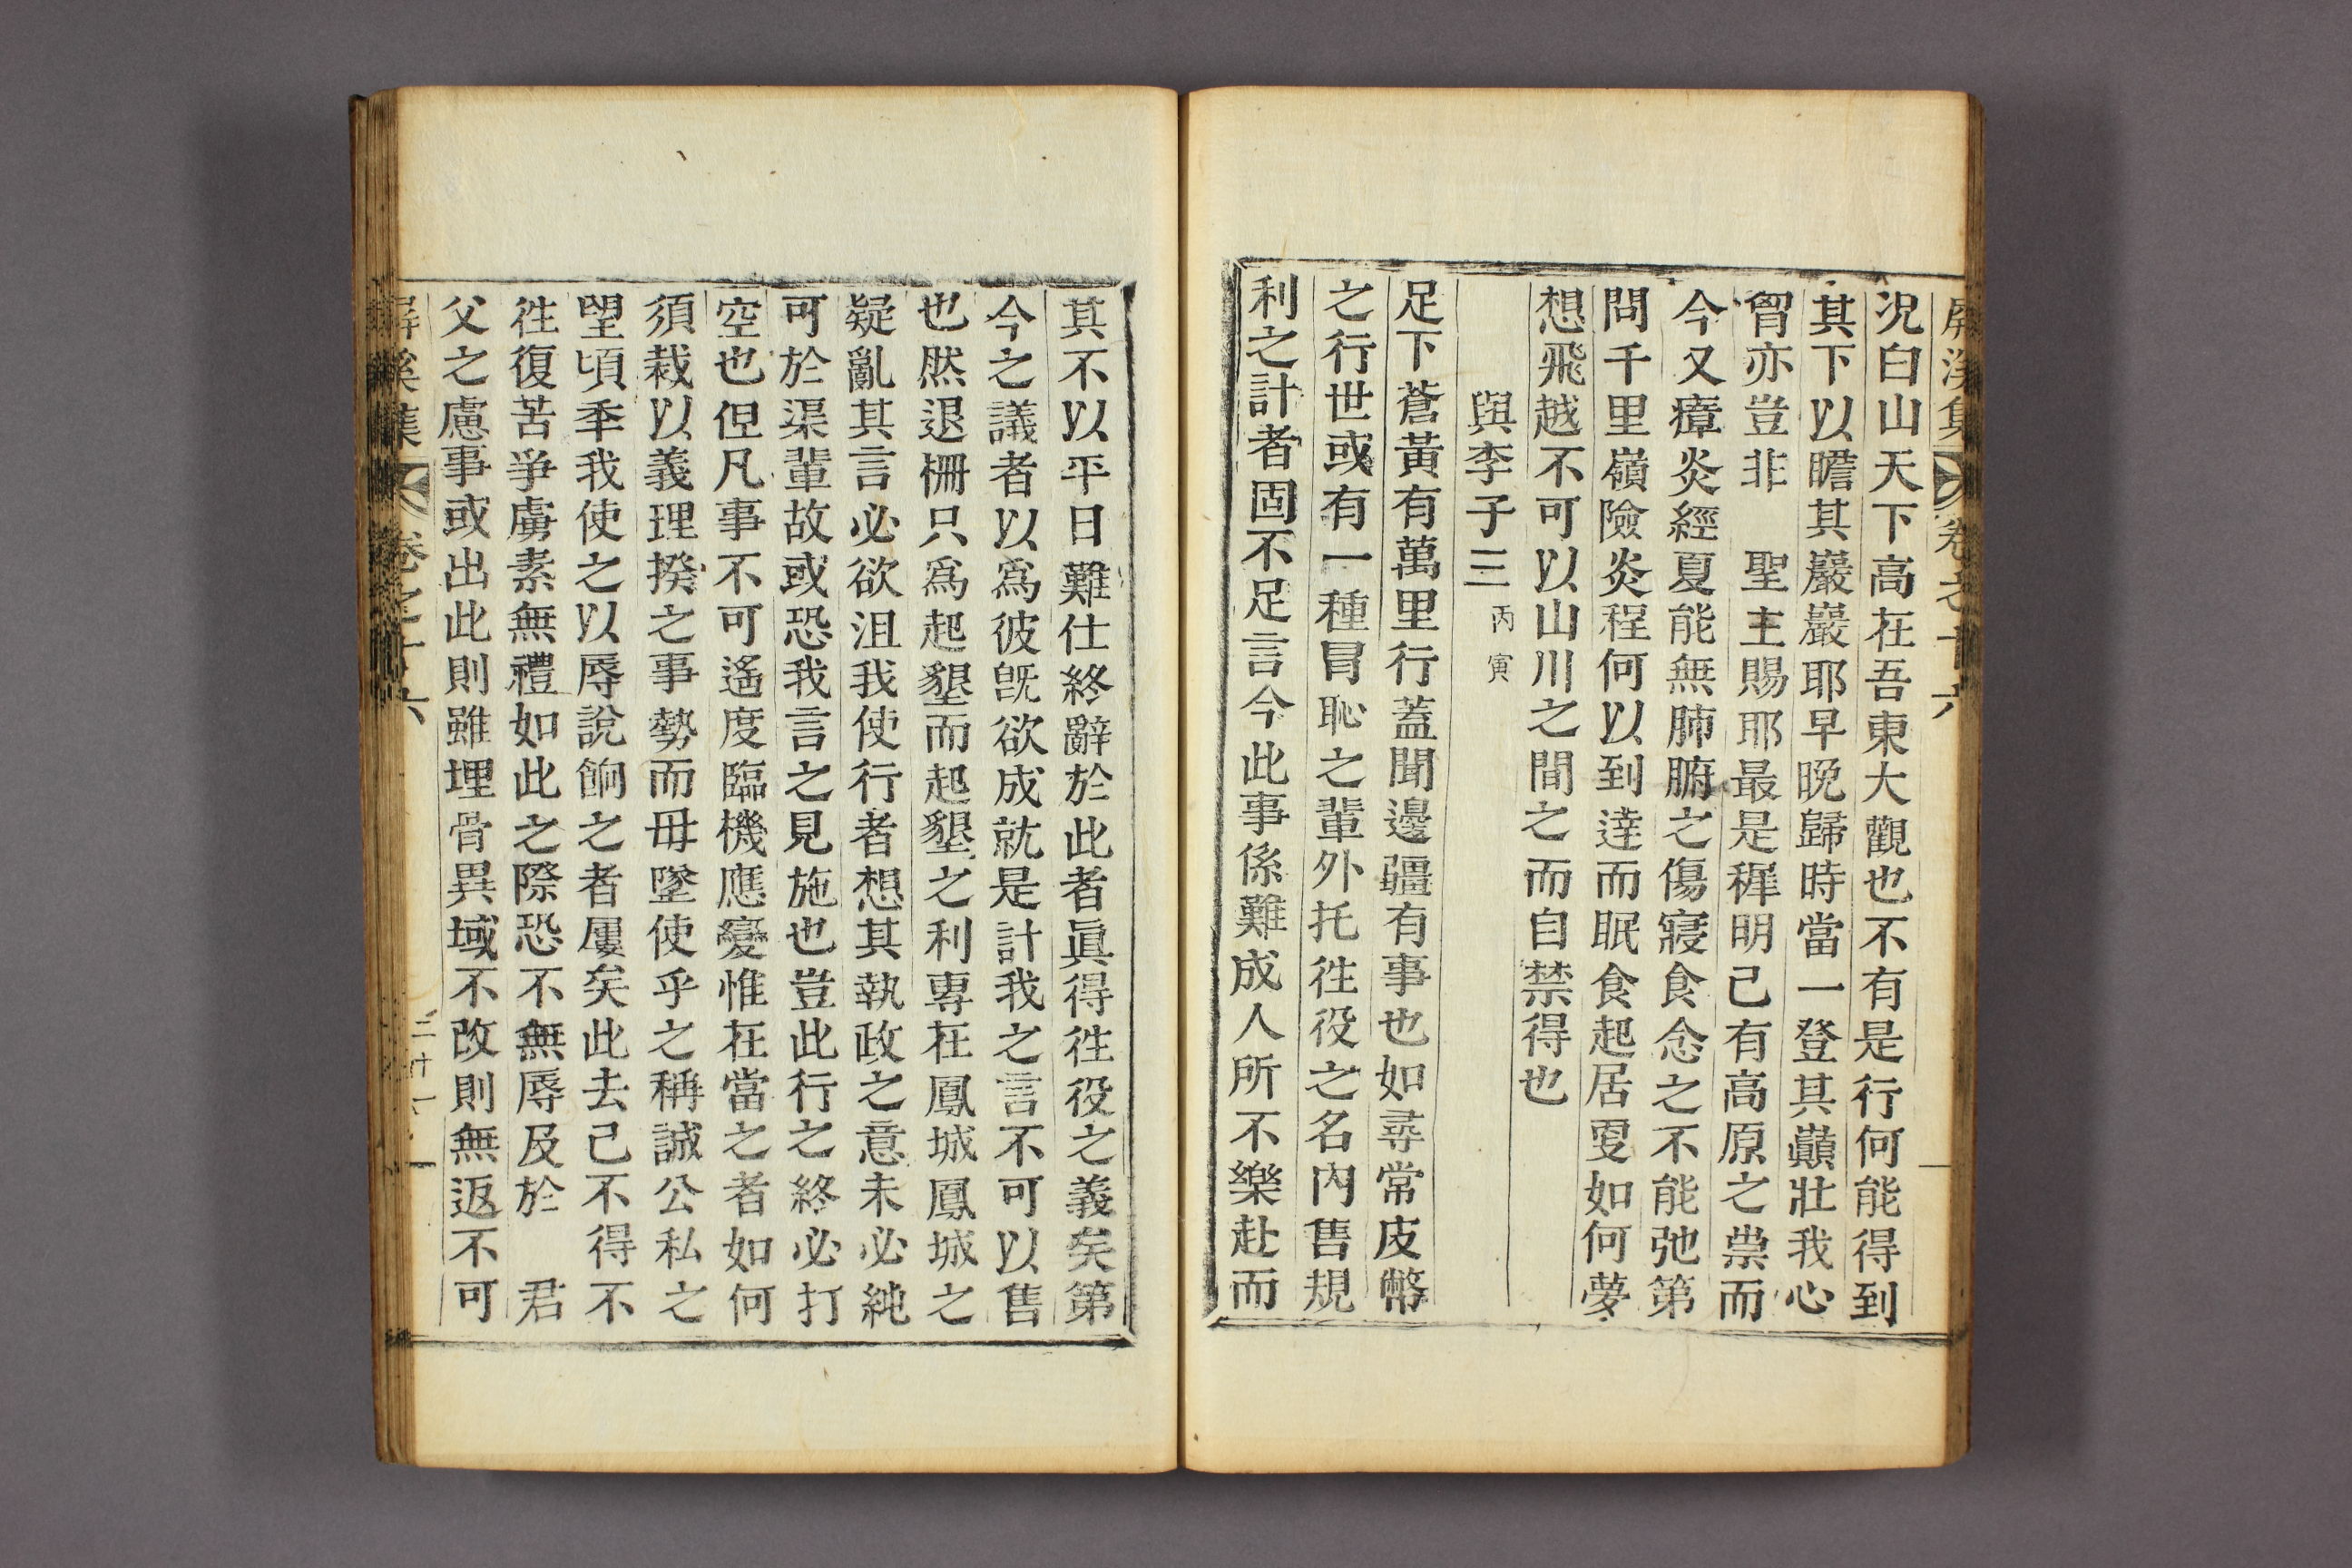 屛溪集 卷之十六
况白山天下高在吾東大觀也不有是行何能得到
其下以瞻其巖巖耶早晩歸時當一登其巓壯我心
胷亦豈非　聖主賜耶最是稺明己有高原之祟而
今又瘴炎經夏能無肺腑之傷寢食念之不能弛第
問千里嶺險炎程何以到達而眠食起居更如何夢
想飛越不可以山川之間之而自禁得也
與李子三 丙寅
足下蒼黃有萬里行蓋聞邊疆有事也如尋常皮幣
之行世或有一種冒恥之輩外托徃役之名內售規
利之計者固不足言今此事係難成人所不樂赴而
其不以平日難仕終辭於此者眞得徃役之義矣第
今之議者以爲彼旣欲成就是計我之言不可以售
也然退柵只爲起墾而起墾之利專在鳳城鳳城之
疑亂其言必欲沮我使行者想其執政之意未必純
可於渠輩故或恐我言之見施也豈此行之終必打
空也但凡事不可遙度臨機應變惟在當之者如何
須裁以義理揆之事勢而毋墜使乎之稱誠公私之
望頃年我使之以辱說餉之者屢矣此去己不得不
徃復苦爭虜素無禮如此之際恐不無辱及於　君
父之慮事或出此則雖埋骨異域不改則無返不可
屛溪集 卷之十六